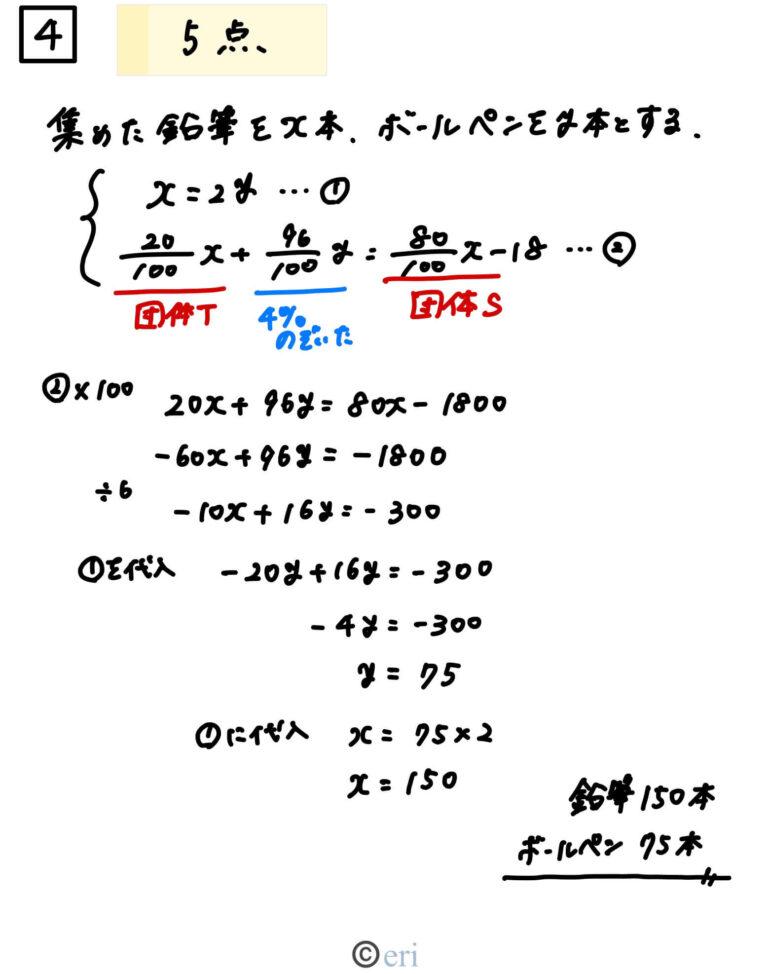 4 5点
集めた鉛筆をx本、ボールペンをy本とする.
x=2y …①
20/100 x + 96/100 y = 80/100 x - 18 …②
団体T 4% 団体S
のぞいた
②×100 20x + 96y = 80x - 1800
-60x + 96y = -1800
÷6 -10x + 16y = -300
①を代入 -20y + 16y = -300
-4y = -300
y = 75
①に代入 x = 75×2
x = 150
鉛筆150本
ボールペン 75本
©eri